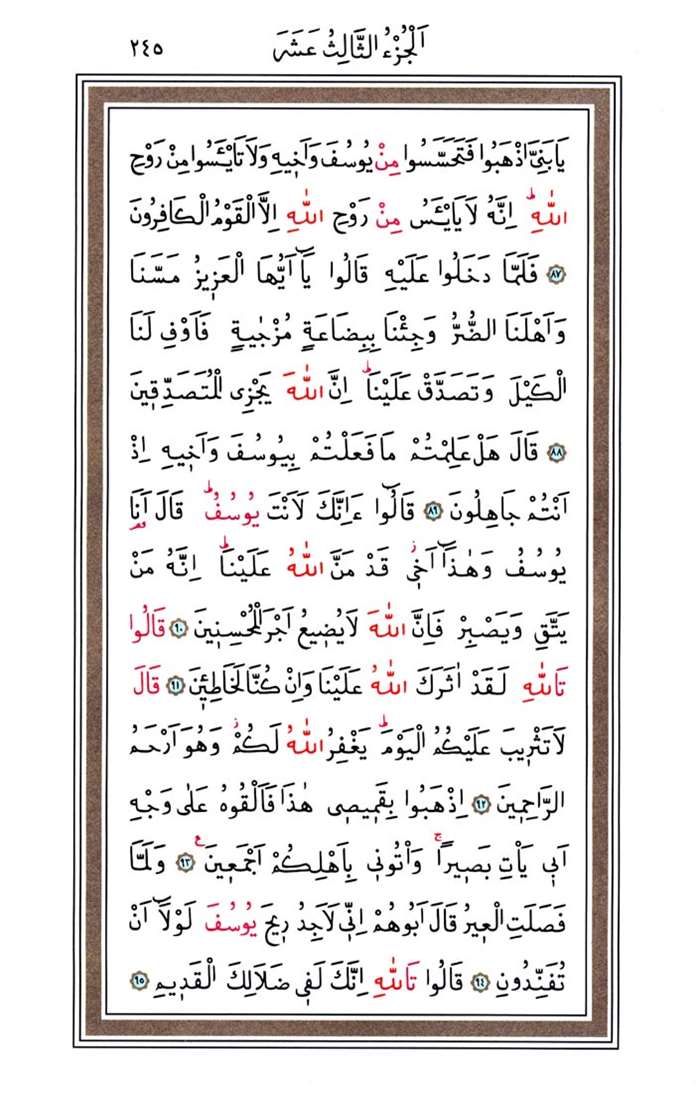 اَلْجُزْءُ الثَّالِثُ عَشَرَ ٢٤٥
يَا بَنِيَّ اذْهَبُوا فَتَحَسَّسُوا مِنْ يُوسُفَ وَاَخ۪يهِ وَلَا تَايْـَٔسُوا مِنْ رَوْحِ
اللّٰهِۜ اِنَّهُ لَا يَايْـَٔسُ مِنْ رَوْحِ اللّٰهِ اِلَّا الْقَوْمُ الْكَافِرُونَ
﴿٨٧﴾ فَلَمَّا دَخَلُوا عَلَيْهِ قَالُوا يَٓا اَيُّهَا الْعَز۪يزُ مَسَّنَا
وَاَهْلَنَا الضُّرُّ وَجِئْنَا بِبِضَاعَةٍ مُزْجٰيةٍ فَاَوْفِ لَنَا
الْكَيْلَ وَتَصَدَّقْ عَلَيْنَاۜ اِنَّ اللّٰهَ يَجْزِي الْمُتَصَدِّق۪ينَ
﴿٨٨﴾ قَالَ هَلْ عَلِمْتُمْ مَا فَعَلْتُمْ بِيُوسُفَ وَاَخ۪يهِ اِذْ
اَنْتُمْ جَاهِلُونَ ﴿٨٩﴾ قَالُٓوا ءَاِنَّكَ لَاَنْتَ يُوسُفُۜ قَالَ اَنَا۬
يُوسُفُ وَهٰذَٓا اَخ۪يۘ قَدْ مَنَّ اللّٰهُ عَلَيْنَاۜ اِنَّهُ مَنْ
يَتَّقِ وَيَصْبِرْ فَاِنَّ اللّٰهَ لَا يُض۪يعُ اَجْرَ الْمُحْسِن۪ينَ ﴿٩٠﴾ قَالُوا
تَاللّٰهِ لَقَدْ اٰثَرَكَ اللّٰهُ عَلَيْنَا وَاِنْ كُنَّا لَخَاطِـ۪ٔينَ ﴿٩١﴾ قَالَ
لَا تَثْر۪يبَ عَلَيْكُمُ الْيَوْمَۜ يَغْفِرُ اللّٰهُ لَكُمْۘ وَهُوَ اَرْحَمُ
الرَّاحِم۪ينَ ﴿٩٢﴾ اِذْهَبُوا بِقَم۪يص۪ي هٰذَا فَاَلْقُوهُ عَلٰى وَجْهِ
اَب۪ي يَأْتِ بَص۪يراًۚ وَأْتُون۪ي بِاَهْلِكُمْ اَجْمَع۪ينَ۟ ﴿٩٣﴾ وَلَمَّا
فَصَلَتِ الْع۪يرُ قَالَ اَبُوهُمْ اِنّ۪ي لَاَجِدُ ر۪يحَ يُوسُفَ لَوْلَٓا اَنْ
تُفَنِّدُونِ ﴿٩٤﴾ قَالُوا تَاللّٰهِ اِنَّكَ لَف۪ي ضَلَالِكَ الْقَد۪يمِ ﴿٩٥﴾